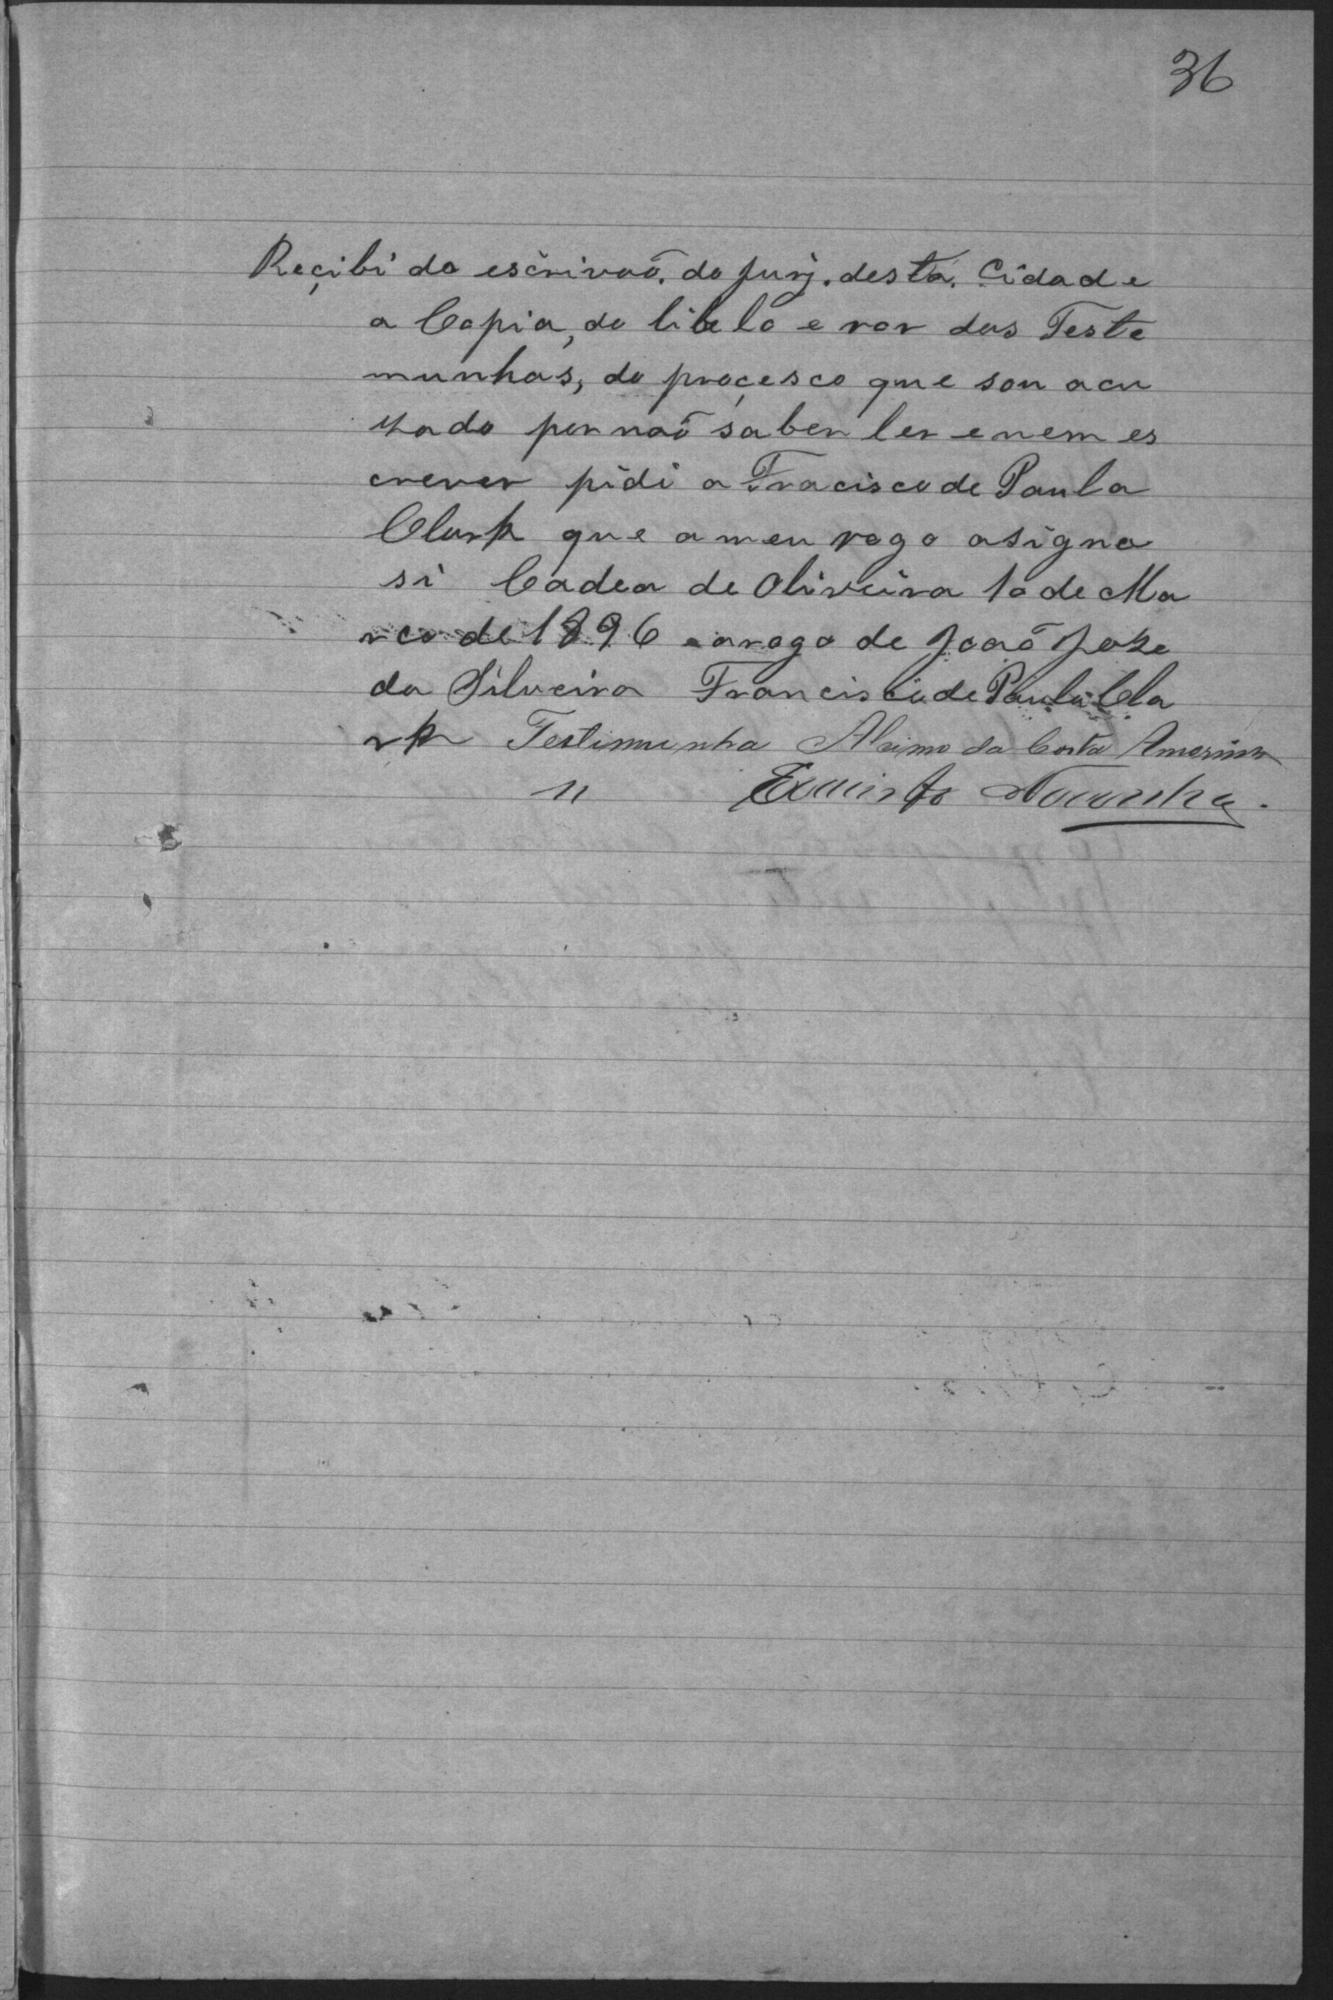 36
Reçibi do escrivaõ. do jury. desta. Cidade
a Copia, do libelo e ror das Teste
munhas, do proçesco que sou acu
zado por naõ saber ler e nem es
crever pidi a Fracisco de Paula
Clark que a meu rogo asigna
si Cadea de Oliveira 10 de Ma
rco de 1896 arogo de Joaõ Joze
da Silveira Francisco de Paula Cla
rk Testimunha da Costa
" Noronha.